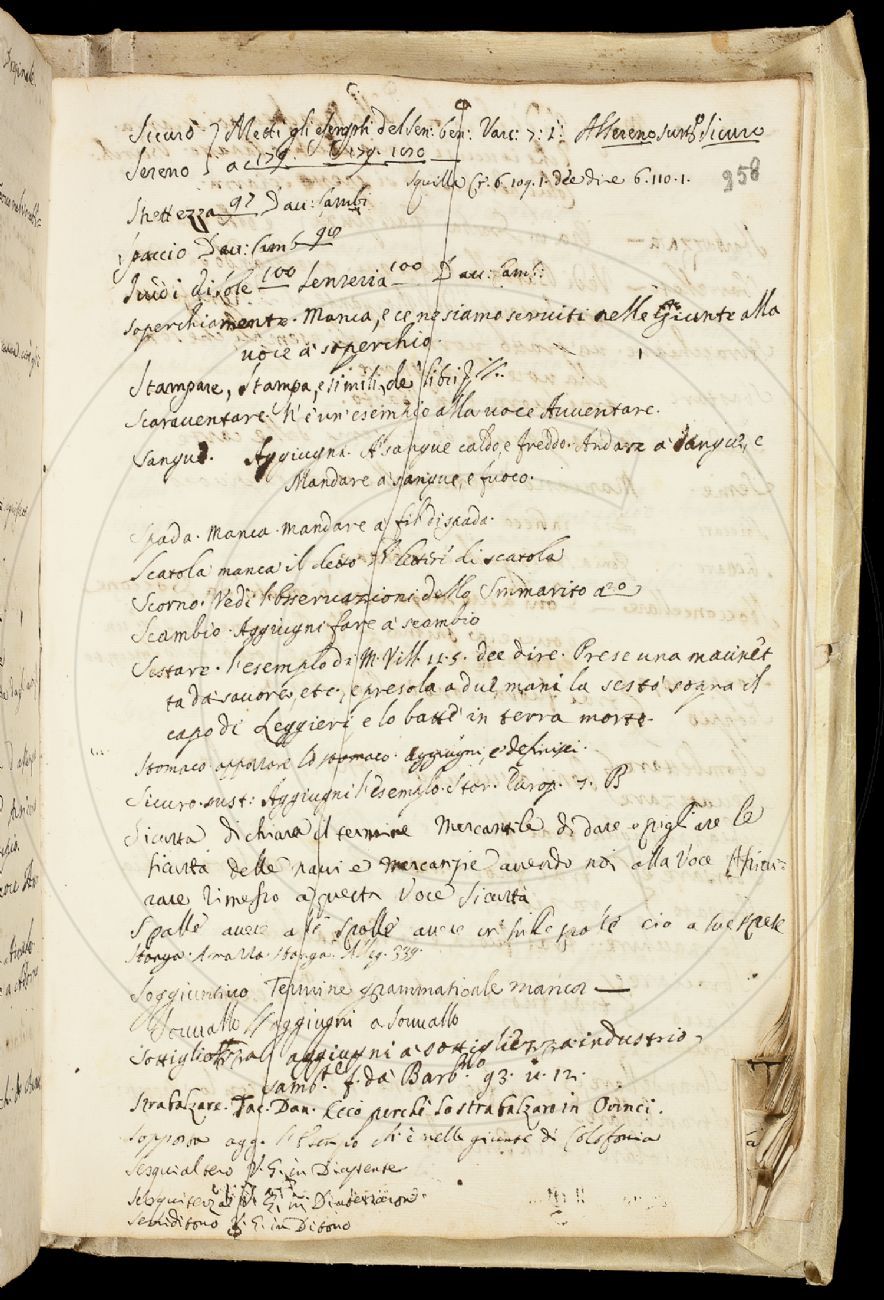 Sicuro } Metti gli esempli del Sen: ben: Varc: 7: 1: Al sereno sust.o Sicuro
Sereno } a c 179. 179. 1020
Squilla Cr. 6. 109. 1. dee dire 6. 110. 1.
258
Strettezza 97 Dav: Camb:
Spaccio Dav: Camb 98
Suoi di sole 100 Senseria 100 Dav: Camb:
Soperchiamente. Manca, e ce ne siamo serviti nelle Giunte alla
voce a soperchio.
Stampare, Stampa, e simili, de' libri
Scaraventare. V'è un'esempio alla voce Avventare.
Sangue. Aggiugni. A sangue caldo, e freddo. Andare a sangue, e
Mandare a sangue, e fuoco.
Spada. Manca. mandare a fil di spada.
Scatola manca il detto lettere di scatola
Scorno. Vedi l'Osservazioni dello Smarrito a 20
Scambio. Aggiugni fare a scambio
Sestare. l'esemplo di M. Vill. 11. 5. dee dire. Prese una macinet
ta da savore, etc., e presola a due mani la sestò sopra il
capo di Leggieri e lo battè in terra morto.
Stomaco. apportare lo stomaco. aggiugni, e definisci.
Sicuro. sust: Aggiugni l'esemplo. Stor. Europ. 7. B
Sicurtà dichiara il termine Mercantile di dare o pigliare le
sicurtà delle navi e mercanzie avendo noi alla voce Assicu-
rare rimesso a questa voce Sicurtà
Spalle avere alle spalle avere in sulle spalle cio a sue spese
Stanga. stanga. 339.
Soggiuntivo Termine grammaticale manca
Sovvallo aggiugni a sovvallo
Sottigliezza aggiugni a sottigliezza industrio
Camb. f. da Barb.no 93. u. 12.
Strabalzare. Tac. Dav. Ecco perchè lo strabalzaro in Ovinci.
Soppossa agg. l'Esempio ch'è nelle giunte di Colofonia
Sesquialtero V. G. in Diapente
Sesquiterzo V. G. in Diatessaron.
Semiditono V. G. in Ditono